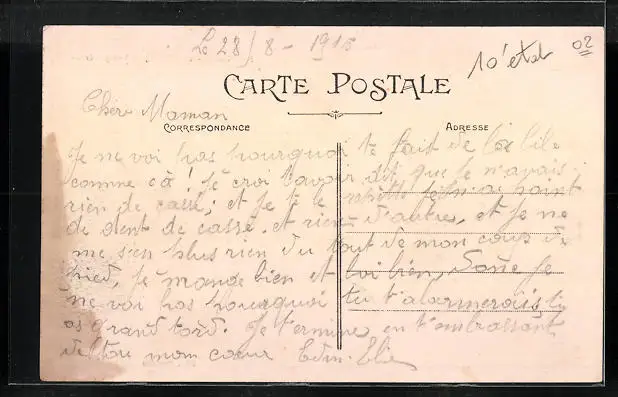 Le 28/8 - 1915
10 02
CARTE POSTALE
Chère Maman
CORRESPONDANCE
ADRESSE
Je ne voi pas pourquoi te fait de la bile
comme ça! Je croi t'avoir dit que je n'avais
rien de casse; et je te le répette je n'ai point
de dent de casse, et rien d'autre, et Je ne
me sen plus rien du tout de mon cous de
pied, Je mange bien et boi bien, Donc Je
ne voi pas pourquoi tu t'alarmerais tu
as grand tord. Je termine en t'embrassant
de tou mon cœur